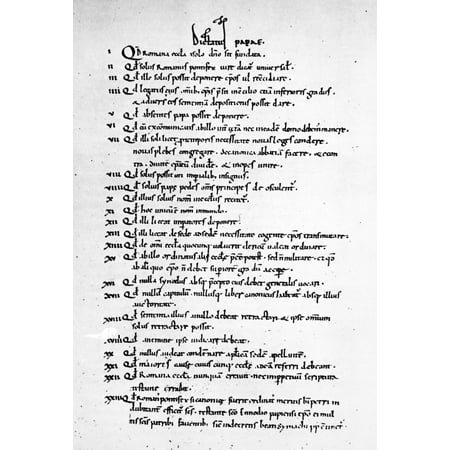 Dictatus papae.
I Qđ Romana eccła solo dño sit fundata.
II Qđ solus Romanus pontifex iure dicat universał.
III Qđ ille solus possit deponere epos uł reconciliare.
IIII Qđ legatus eius omib; epis presit in concilio etiam inferioris gradus
& adversus eos sententiam depositionis possit dare.
V Qđ absentes papa possit deponere.
VI Qđ cum excommunicatis ab illo inter cetera nec in eadem domo debemus manere.
VII Qđ illi soli licet pro temporis necessitate novas leges condere
novas plebes congregare, de canonica abbatiam facere, & econtra
divitem episcopatum dividere & inopes unire.
VIII Qđ solus possit uti imperialib; insigniis.
VIIII Qđ solius pape pedes oms principes deosculent.
X Qđ illius solius nomen in ecclesiis recitet.
XI Qđ hoc unicum nomen in mundo.
XII Qđ illi liceat imperatores deponere.
XIII Qđ illi liceat de sede ad sedem necessitate cogente epos transmutare.
XIIII Qđ de omi eccła quocunq; voluerit clericum valeat ordinare.
XV Qđ ab illo ordinatus alii eccłe preesse potest, sed non militare, et qđ
ab aliquo epo non debet superiorem gradum accipere.
XVI Qđ nulla synodus absq; precepto eius debet generalis vocari.
XVII Qđ nullum capitulum nullusq; liber canonicus habeatur absq; illius
auctoritate.
XVIII Qđ sententia illius a nullo debeat retractari & ipse omnium
solus retractare possit.
XVIIII Qđ a nemine ipse iudicari debeat.
XX Qđ nullus audeat condemnare apostolicam sedem apellantem.
XXI Qđ maiores cause cuiuscunq; eccłe ad eam referri debeant.
XXII Qđ Romana eccła nunquam erravit nec in perpetuum scriptura
testante errabit.
XXIII Qđ Romanus pontifex si canonice fuerit ordinatus meritis beati petri in
dubitanter efficitur scs, testante sco Ennodio papiensi epo ei mul
tis scis patribus faventib; sicut in decretis beati Symachi pape continet